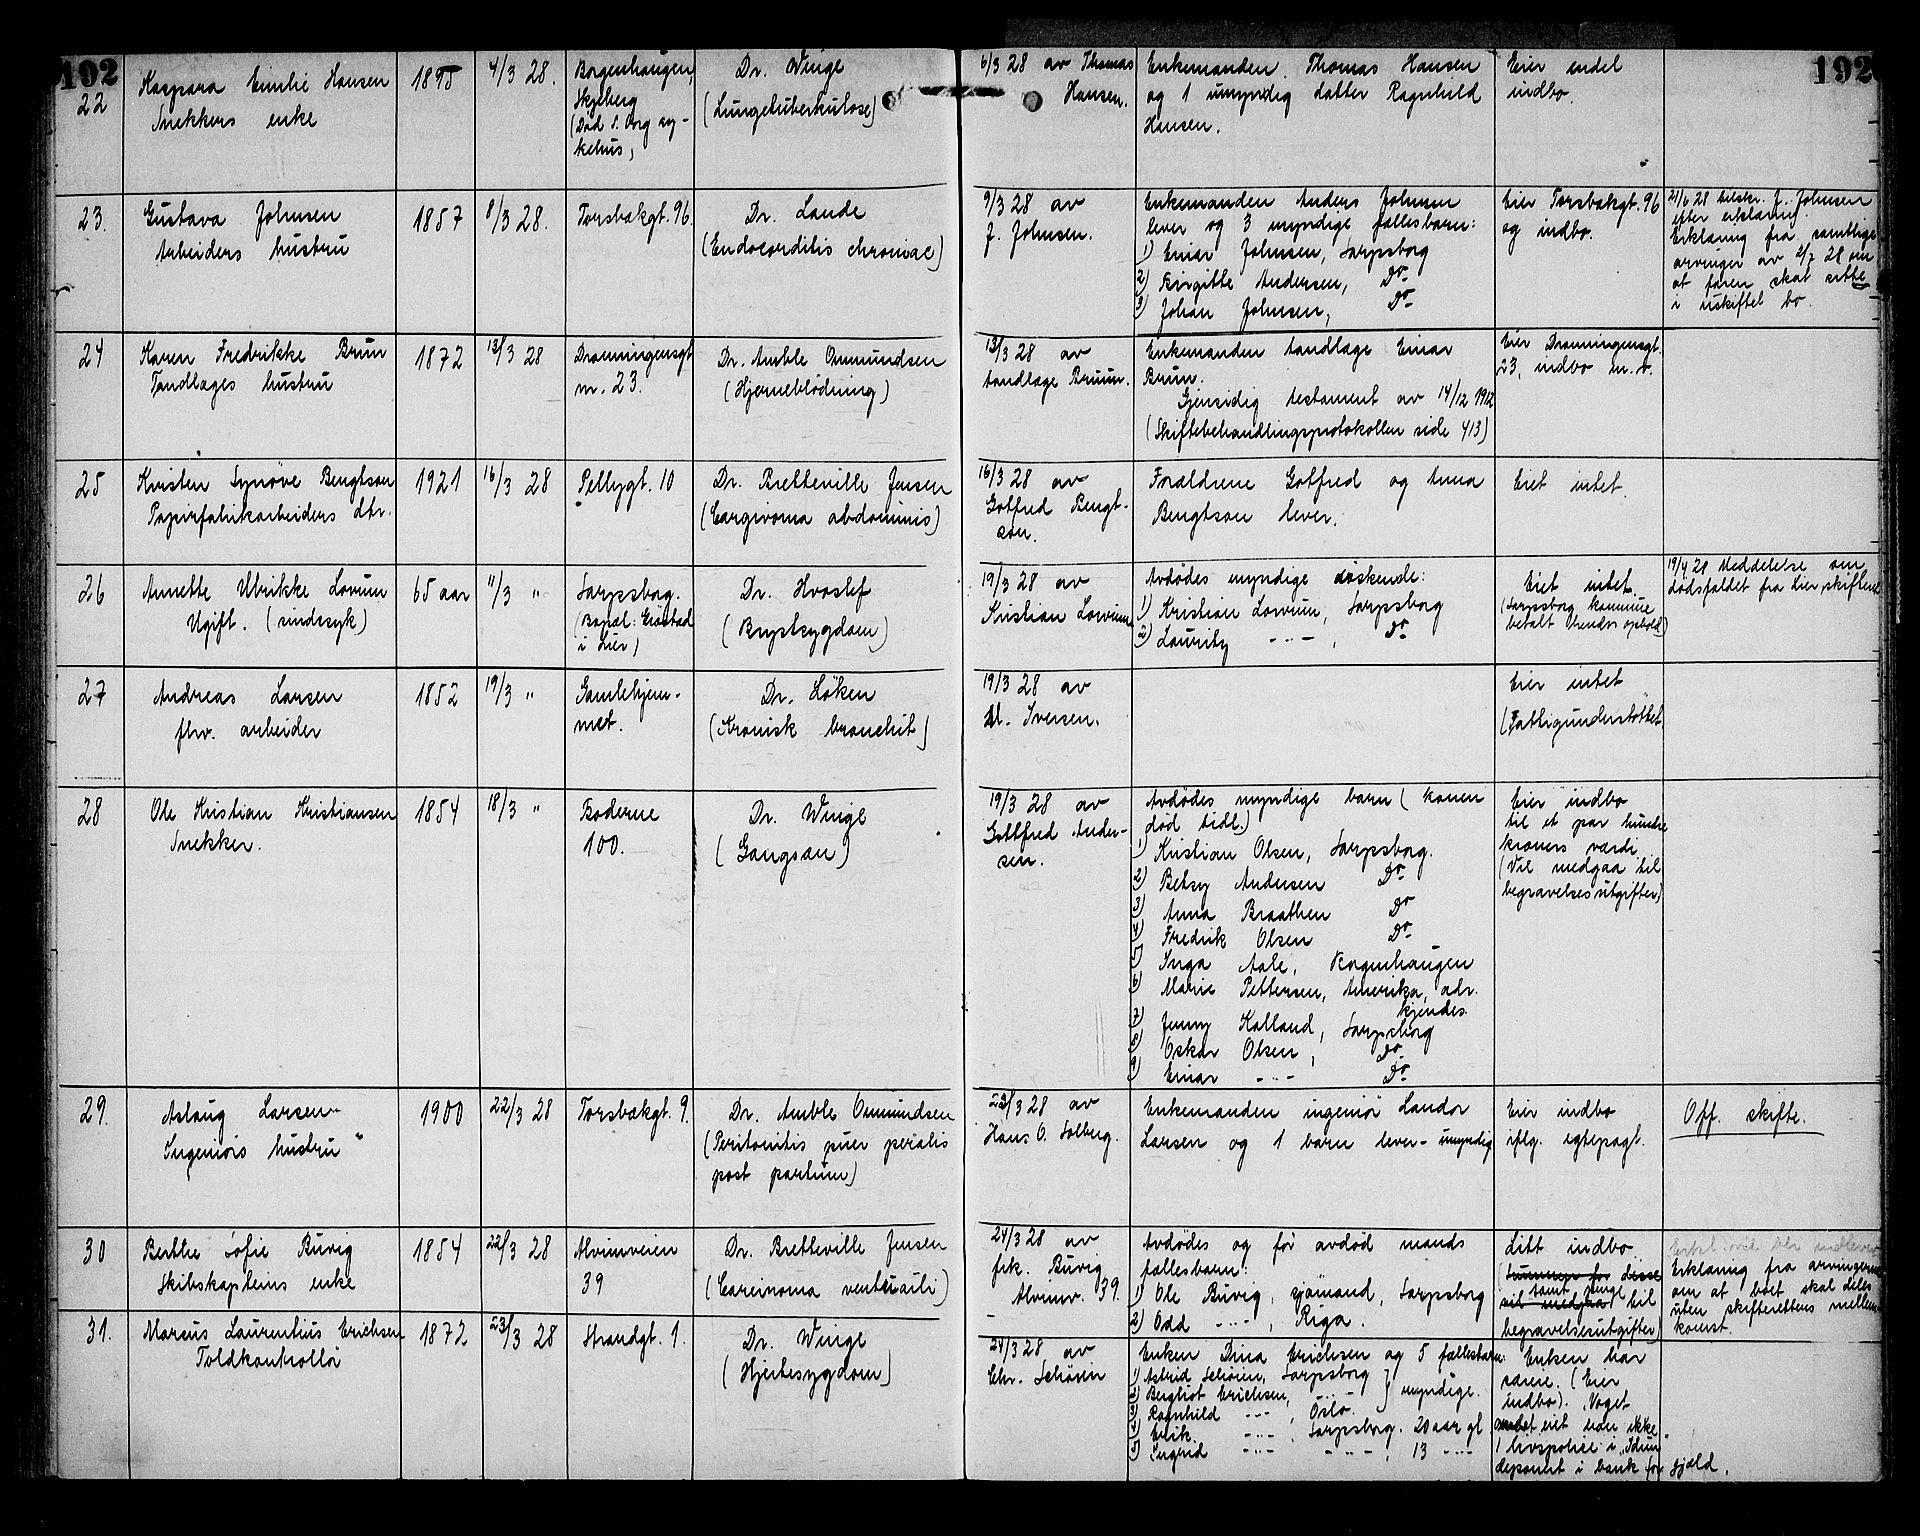 192
192
22
Kaspara Emilie Hansen
Snekkers enke
1895
4/3 28.
Borgenhaugen
Skjeberg
(Død S. Borg sy-
kehus,
Dr. Winge
(Lungetuberkulose)
6/3 28 av Thomas
Hansen.
Enkemanden Thomas Hansen
og 1 umyndig datter Ragnhild
Hansen.
Eier endel
indbo.
23.
Gustava Johnsen
Arbeiders hustru
1857
8/3 28.
Torsbækgt. 96.
Dr. Lande
(Endocorditis chroniac)
9/3 28 av
J. Johnsen.
Enkemanden Anders Johnsen
lever og 3 myndige fællesbarn:
1) Einar Johnsen, Sarpsborg
2) Birgitte Andersen, Do
3) Johan Johnsen, Do
Eier Torsbækgt. 96
og indbo.
21/6 28 tilskr. J. Johnsen
efter erklæring.
Erklæring fra samtlige
arvinger av 2/7 28 om
at faren skal sitte
i uskiftet bo.
24
Karen Fredrikke Brun
Tandlæges hustru
1872
13/3 28
Dronningensgt
nr. 23.
Dr. Amble Ommundsen
(Hjerneblödning)
13/3 28 av
tandlæge Bruun.
Enkemanden tandlæge Einar
Brun.
Gjensidig testament av 14/12 1912
(Skiftebehandlingsprotokollen side 413)
Eier Dronningensgt.
23, indbo m. v.
25
Kristen Synöve Bengtson
Papirfabrikarbeiders dtr.
1921
16/3 28
Pellygt. 10
Dr. Bretteville Jensen
(Carginoma abdominis)
16/3 28 av
Gotfred Bengt-
son.
Forældrene Gotfred og Anna
Bengtson lever.
Eiet intet.
26
Annette Ulrikke Lorum
Ugift. (sindssyk)
65 aar
11/3 "
Sarpsborg.
(Bopæl: Enstad
i Lier)
Dr. Hvoslef
(Brystsygdom)
19/3 28 av
Kristian Lorum
Avdödes myndige söskende:
1) Kristian Lorum, Sarpsborg
2) Lauritz -"- , Do
Eiet intet.
(Sarpsborg kommune
betalt hendes ophold)
19/4 28 Meddelelse om
dödsfaldet fra Lier skifteret
27
Andreas Larsen
fhv. arbeider
1852
19/3 "
Gamlehjem-
met.
Dr. Løken
(Kronisk bronchit)
19/3 28 av
M. Iversen.
Eier intet
(Fattigunderstöttet
28
Ole Kristian Kristiansen
Snekker.
1854
18/3 "
Boderne
100.
Dr. Winge
(Gangræn)
19/3 28 av
Gottfred Ander-
sen.
Avdödes myndige barn (konen
död tidl.)
1) Kristian Olsen, Sarpsborg.
2) Betsy Andersen Do
3) Anna Braathen Do
4) Fredrik Olsen Do
5) Inga Aale, Borgenhaugen
6) Marie Pettersen, Amerika, adr.
kjendes
7) Jenny Kalland, Sarpsborg
8) Oskar Olsen, Do
9) Einar -"- Do
Eier indbo
til et par hundre
kroners værdi.
(Vil medgaa til
begravelsesutgifter)
29.
Aslaug Larsen
Ingeniörs hustru
1900
22/3 28
Torsbækgt. 9.
Dr. Amble Ommundsen
(Peritonitis puer peralis
post partum)
23/3 28 av
Hans O. Solberg.
Enkemanden ingeniör Landor
Larsen og 1 barn lever - umyndig
Eier indbo
iflg. egtepagt.
Off. skifte.
30
Berthe Sofie Buvig
Skibskapteins enke
1854
22/3 28
Alvimveien
39
Dr. Bretteville Jensen
(Carcinoma ventriculi)
24/3 28 av
frk. Buvig
Alvimv. 39.
Avdödes og før avdöd mands
fællesbarn:
1) Ole Buvig, sjömand, Sarpsborg
2) Odd -"- , Riga.
Litt indbo.
(Summen for disse
samt penge
vil medgaa til
begravelsesutgifter)
Erkl. vil bli indlevert
Erklæring fra arvingerne
om at boet skal deles
uten skifterettens mellem-
komst.
31.
Marcus Laurentius Erichsen
Toldkontrollör
1872
23/3 28
Strandgt. 1.
Dr. Winge
(Hjertesygdom)
24/3 28 av
Chr. Schörin
Enken Dina Erichsen og 5 fællesbarn:
1) Astrid Schörin, Sarpsborg
2) Bergliot Erichsen, -"- } myndige.
3) Ragnhild -"- , Oslo.
4) Erik. -"- , Sarpsborg. 20 aar gl
5) Ingrid -"- -"- , 13 -"-
Enken har
(Eier
indbo). Noget
eiet han ikke.
1 livspolice i "Idun
deponert i bank for gjæld.